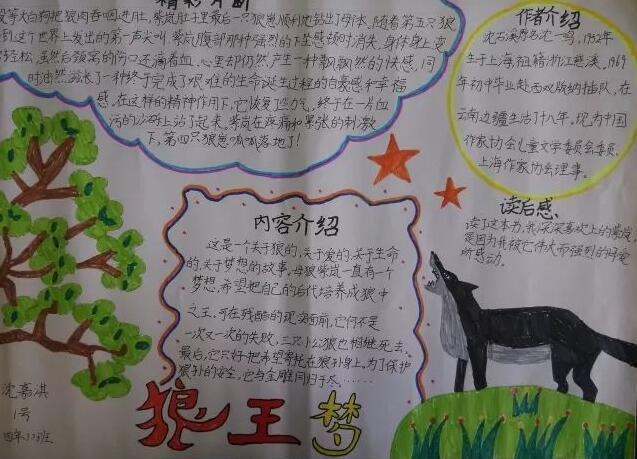 精彩片断
等大白狗把狼肉吞咽进肚,紫岚肚子里最后一只狼崽顺利地钻出了母体,随着第五只狼
到这个世界上发出的第一声尖叫,紫岚腹部那种强烈的下坠感顿时消失,身体身上变
轻松,虽然后颈窝的伤口还滴着血,心里却仍然产生一种飘飘然的快感,同
时油然滋长了一种终于完成了艰难的生命诞生过程的自豪感和幸福
感,在这样的精神作用下,它恢复了些力气,终于在一片血
污的沙砾上站了起来,紫岚在疼痛和紧张的刺激
下,第四只狼崽呱呱落地了!
作者介绍
沈石溪原名沈一鸣,1952年
生于上海,祖籍浙江慈溪,1969
年初中毕业赴西双版纳插队,在
云南边疆生活了十八年。现为中国
作家协会儿童文学委员会委员,
上海作家协会理事。
内容介绍
这是一个关于狼的,关于爱的,关于生命
的,关于梦想的故事,母狼紫岚一直有一个
梦想,希望把自己的后代培养成狼中
之王,可在残酷的现实面前,它们不是
一次又一次的失败,三只小公狼也相继死去,
最后,它只好把希望寄托在狼孙身上。为了保护
狼孙的安全,它与金雕同归于尽……
读后感
读了这本书,我深深喜欢上的紫岚,
是因为我被它伟大而强烈的母爱
所感动。
沈嘉淇
1号
四年(7)班
狼王梦